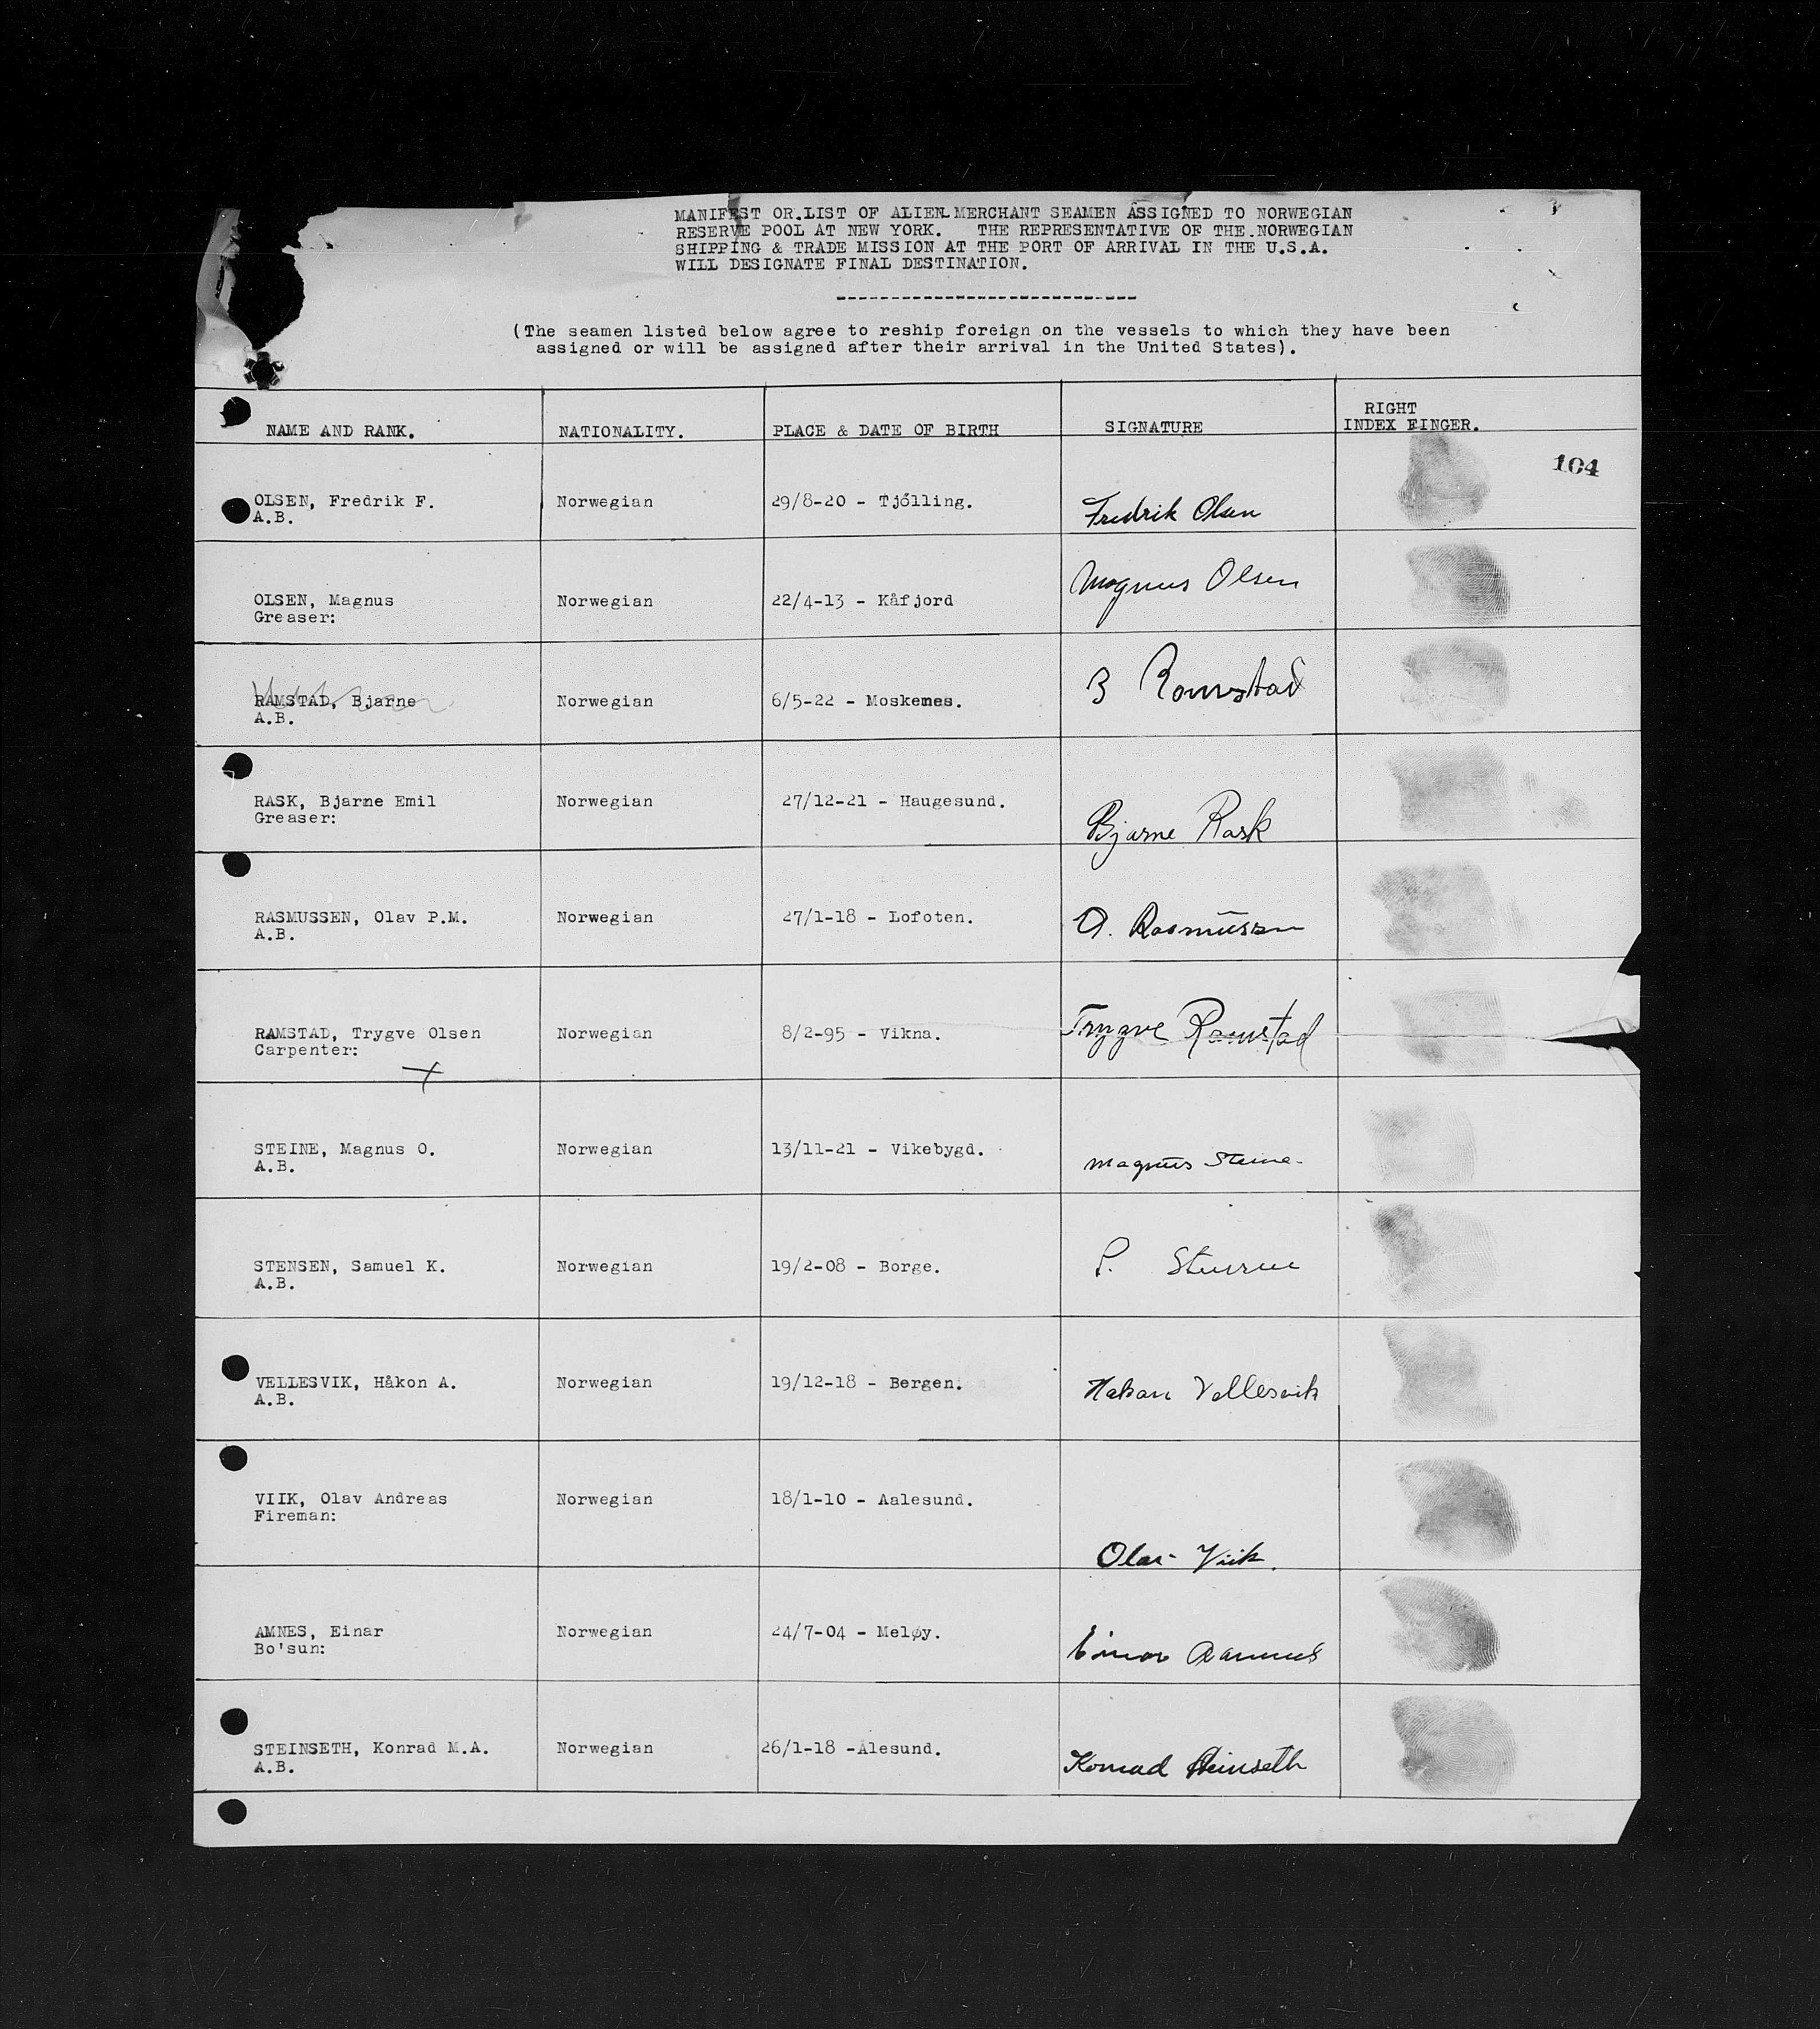 MANIFEST OR LIST OF ALIEN MERCHANT SEAMEN ASSIGNED TO NORWEGIAN
RESERVE POOL AT NEW YORK. THE REPRESENTATIVE OF THE NORWEGIAN
SHIPPING & TRADE MISSION AT THE PORT OF ARRIVAL IN THE U.S.A.
WILL DESIGNATE FINAL DESTINATION.
----------------------------
(The seamen listed below agree to reship foreign on the vessels to which they have been
assigned or will be assigned after their arrival in the United States).
NAME AND RANK. NATIONALITY. PLACE & DATE OF BIRTH SIGNATURE RIGHT
INDEX FINGER.
104
OLSEN, Fredrik F. Norwegian 29/8-20 - Tjőlling. Fredrik Olsen
A.B.
OLSEN, Magnus Norwegian 22/4-13 - Kåfjord Magnus Olsen
Greaser:
RAMSTAD, Bjarne Norwegian 6/5-22 - Moskenes. B Ramstad
A.B.
RASK, Bjarne Emil Norwegian 27/12-21 - Haugesund. Bjarne Rask
Greaser:
RASMUSSEN, Olav P.M. Norwegian 27/1-18 - Lofoten. O. Rasmussen
A.B.
RAMSTAD, Trygve Olsen Norwegian 8/2-95 - Vikna. Trygve Ramstad
Carpenter:
X
STEINE, Magnus O. Norwegian 13/11-21 - Vikebygd. Magnus Steine
A.B.
STENSEN, Samuel K. Norwegian 19/2-08 - Borge. S. Stensen
A.B.
VELLESVIK, Håkon A. Norwegian 19/12-18 - Bergen. Hakon Vellesvik
A.B.
VIIK, Olav Andreas Norwegian 18/1-10 - Aalesund. Olav Viik.
Fireman:
AMNES, Einar Norwegian 24/7-04 - Meløy. Einar Aamnes
Bo'sun:
STEINSETH, Konrad M.A. Norwegian 26/1-18 -Ålesund. Konrad Steinseth
A.B.